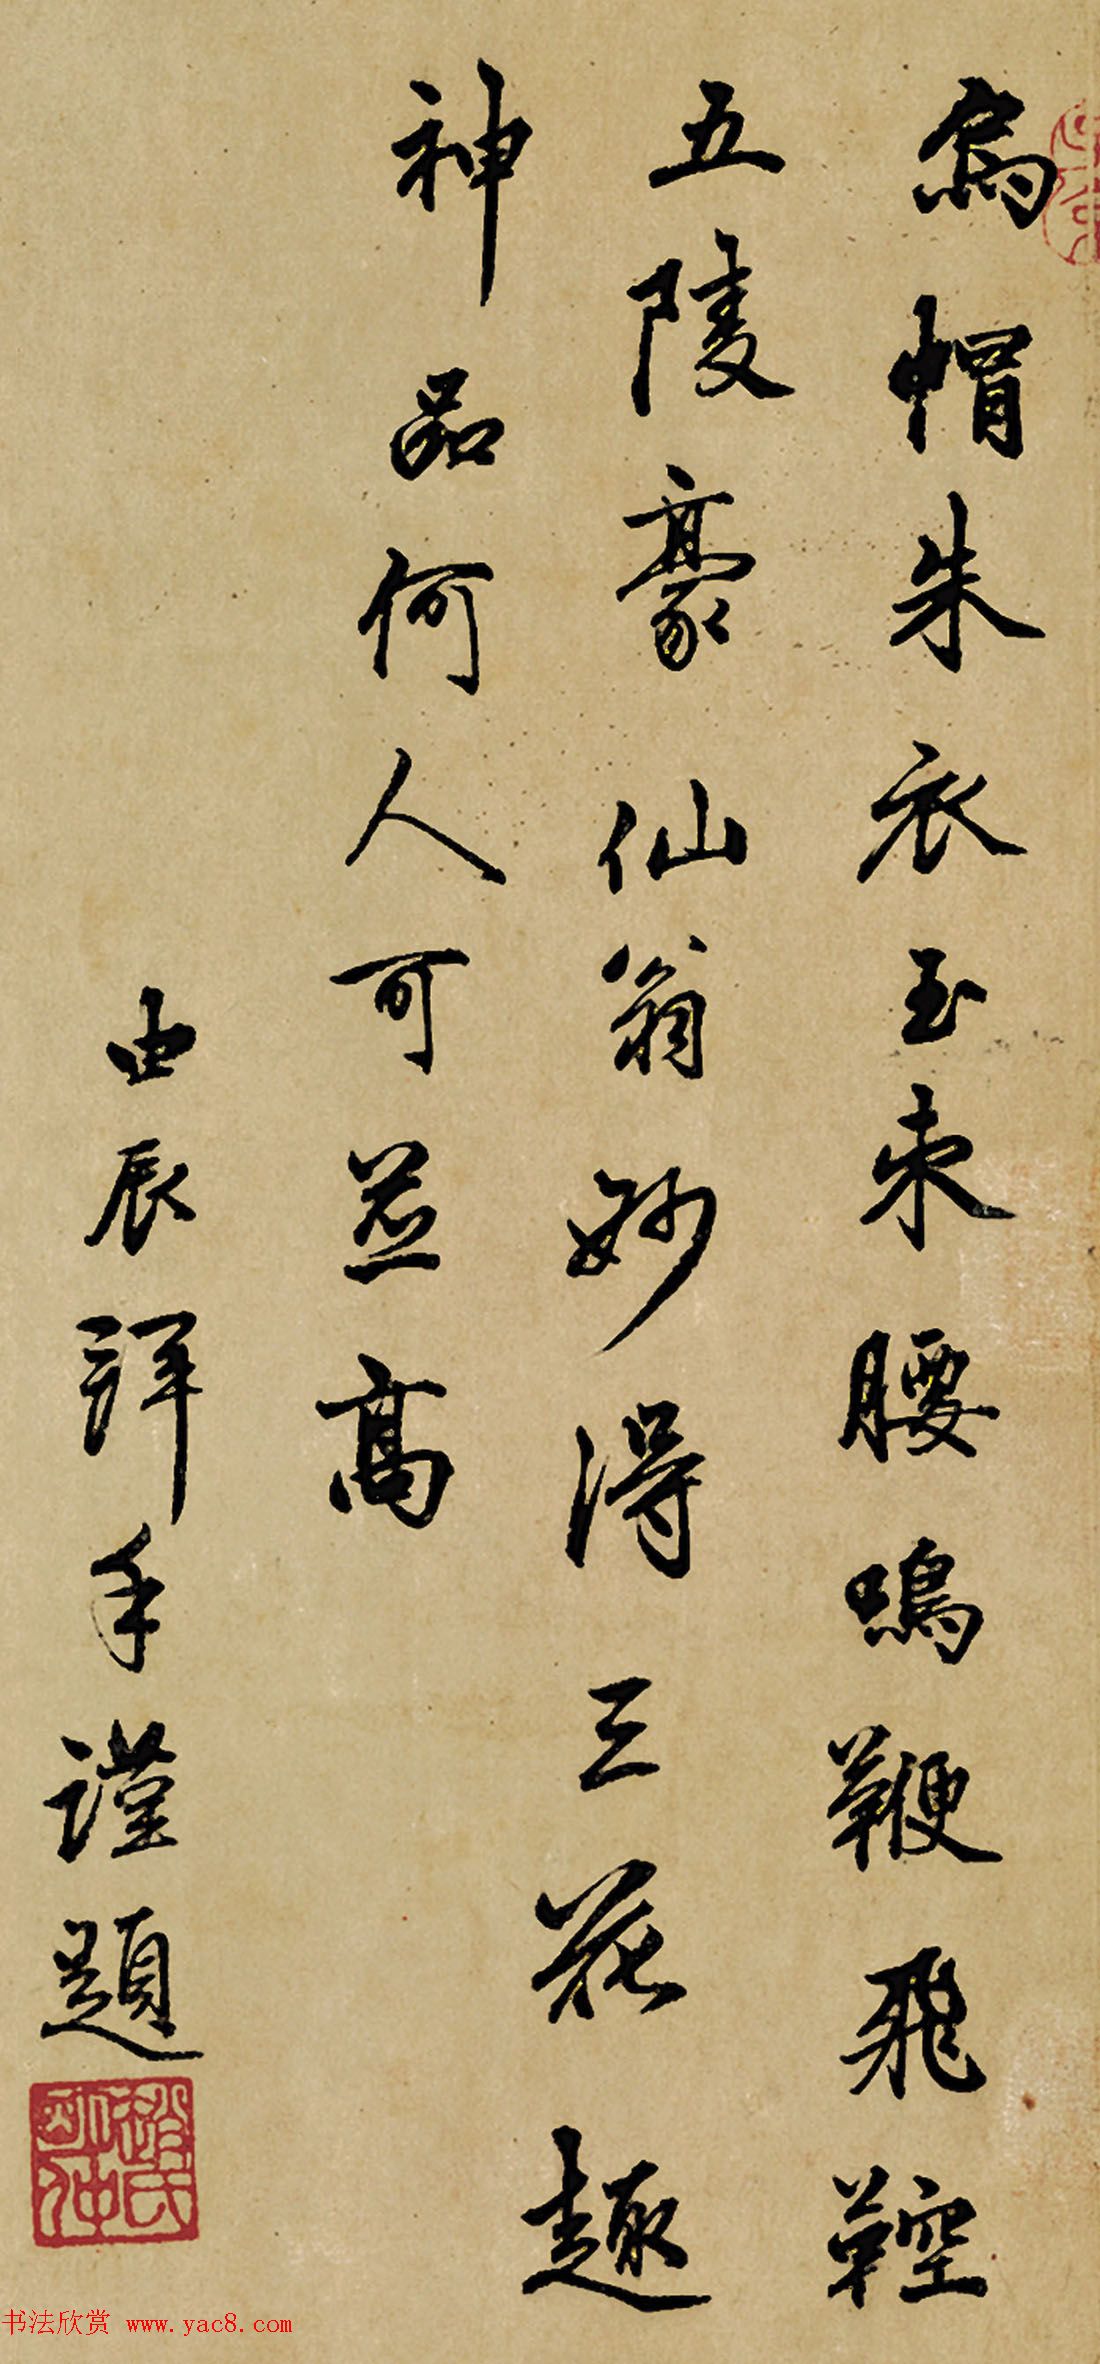 烏帽朱衣玉束腰鳴鞭飛鞚
五陵豪仙翁妙得三花趣
神品何人可並高
由辰拜手謹題
趙氏仲
书法欣赏 www.yac8.com